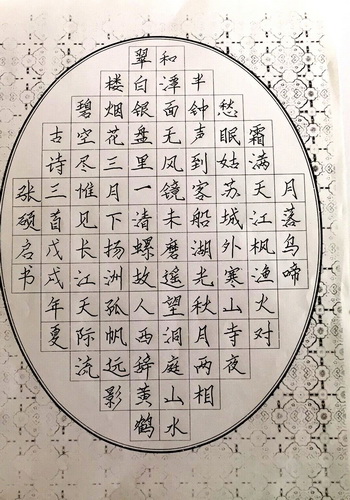 月落乌啼
霜满天江枫渔火对
愁眠姑苏城外寒山寺夜
半钟声到客船湖光秋月两相
和潭面无风镜未磨遥望洞庭山水
翠白银盘里一清螺故人西辞黄鹤
楼烟花三月下扬洲孤帆远影
碧空尽惟见长江天际流
古诗三首戊戌年夏
张硕启书